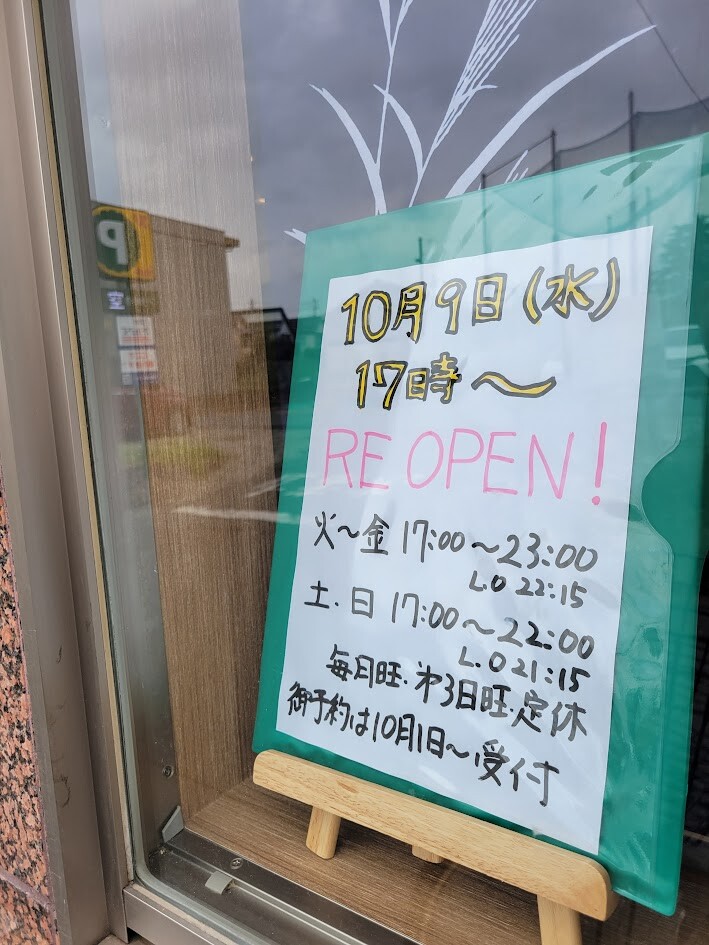 P
空
10月9日(水)
17時〜
RE OPEN!
火〜金 17:00〜23:00
L.O 22:15
土.日 17:00〜22:00
L.O 21:15
毎月旺.才3日旺.定休
御予約は10月1日〜受付